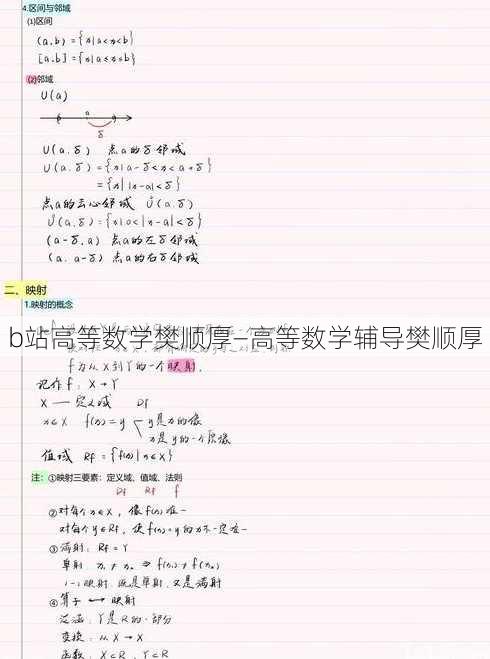 4.区间与邻域
(1)区间
(a,b)={x|a<x<b}
[a,b]={x|a≤x≤b}
(2)邻域
U(a)
a
δ
U(a,δ) 点a的δ邻域
U(a,δ)={x|a-δ<x<a+δ}
={x||x-a|<δ}
点a的去心邻域 Ů(a,δ)
Ů(a,δ)={x|0<|x-a|<δ}
(a-δ,a) 点a的左δ邻域
(a,a-δ) 点a的右δ邻域
二、映射
1.映射的概念
b站高等数学樊顺厚—高等数学辅导樊顺厚
f为从X到Y的一个映射.
记作f: X→Y
X — 定义域 Df
x∈X f(x)=y y是x的像
x是y的一个原像
值域 Rf={f(x)|x∈X}
注: ①映射三要素: 定义域、值域、法则
Df Rf f
②对每个x∈X, 像f(x)唯一
对每个y∈Rf, 使f(x)=y的x不一定唯一
③满射: Rf=Y
单射: x₁≠x₂ ⇒ f(x₁)≠f(x₂)
1-1映射 既是单射,又是满射
④算子 ⟷ 映射
泛函: Y是R的一部分
变换: 从X→X
函数: X⊂R, Y⊂R